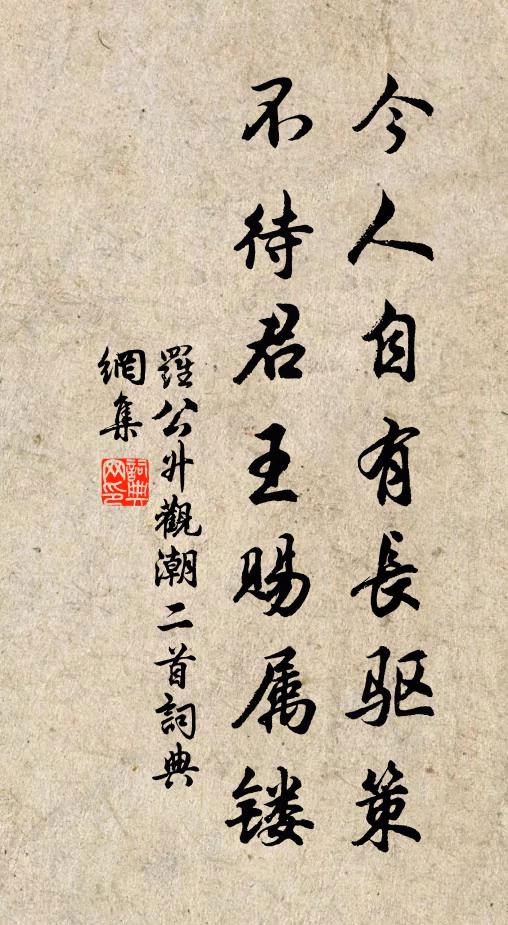 今人自有長驱策
不待君王赐属镂
羅公升觀潮二首詞典
網集
詞典
网印